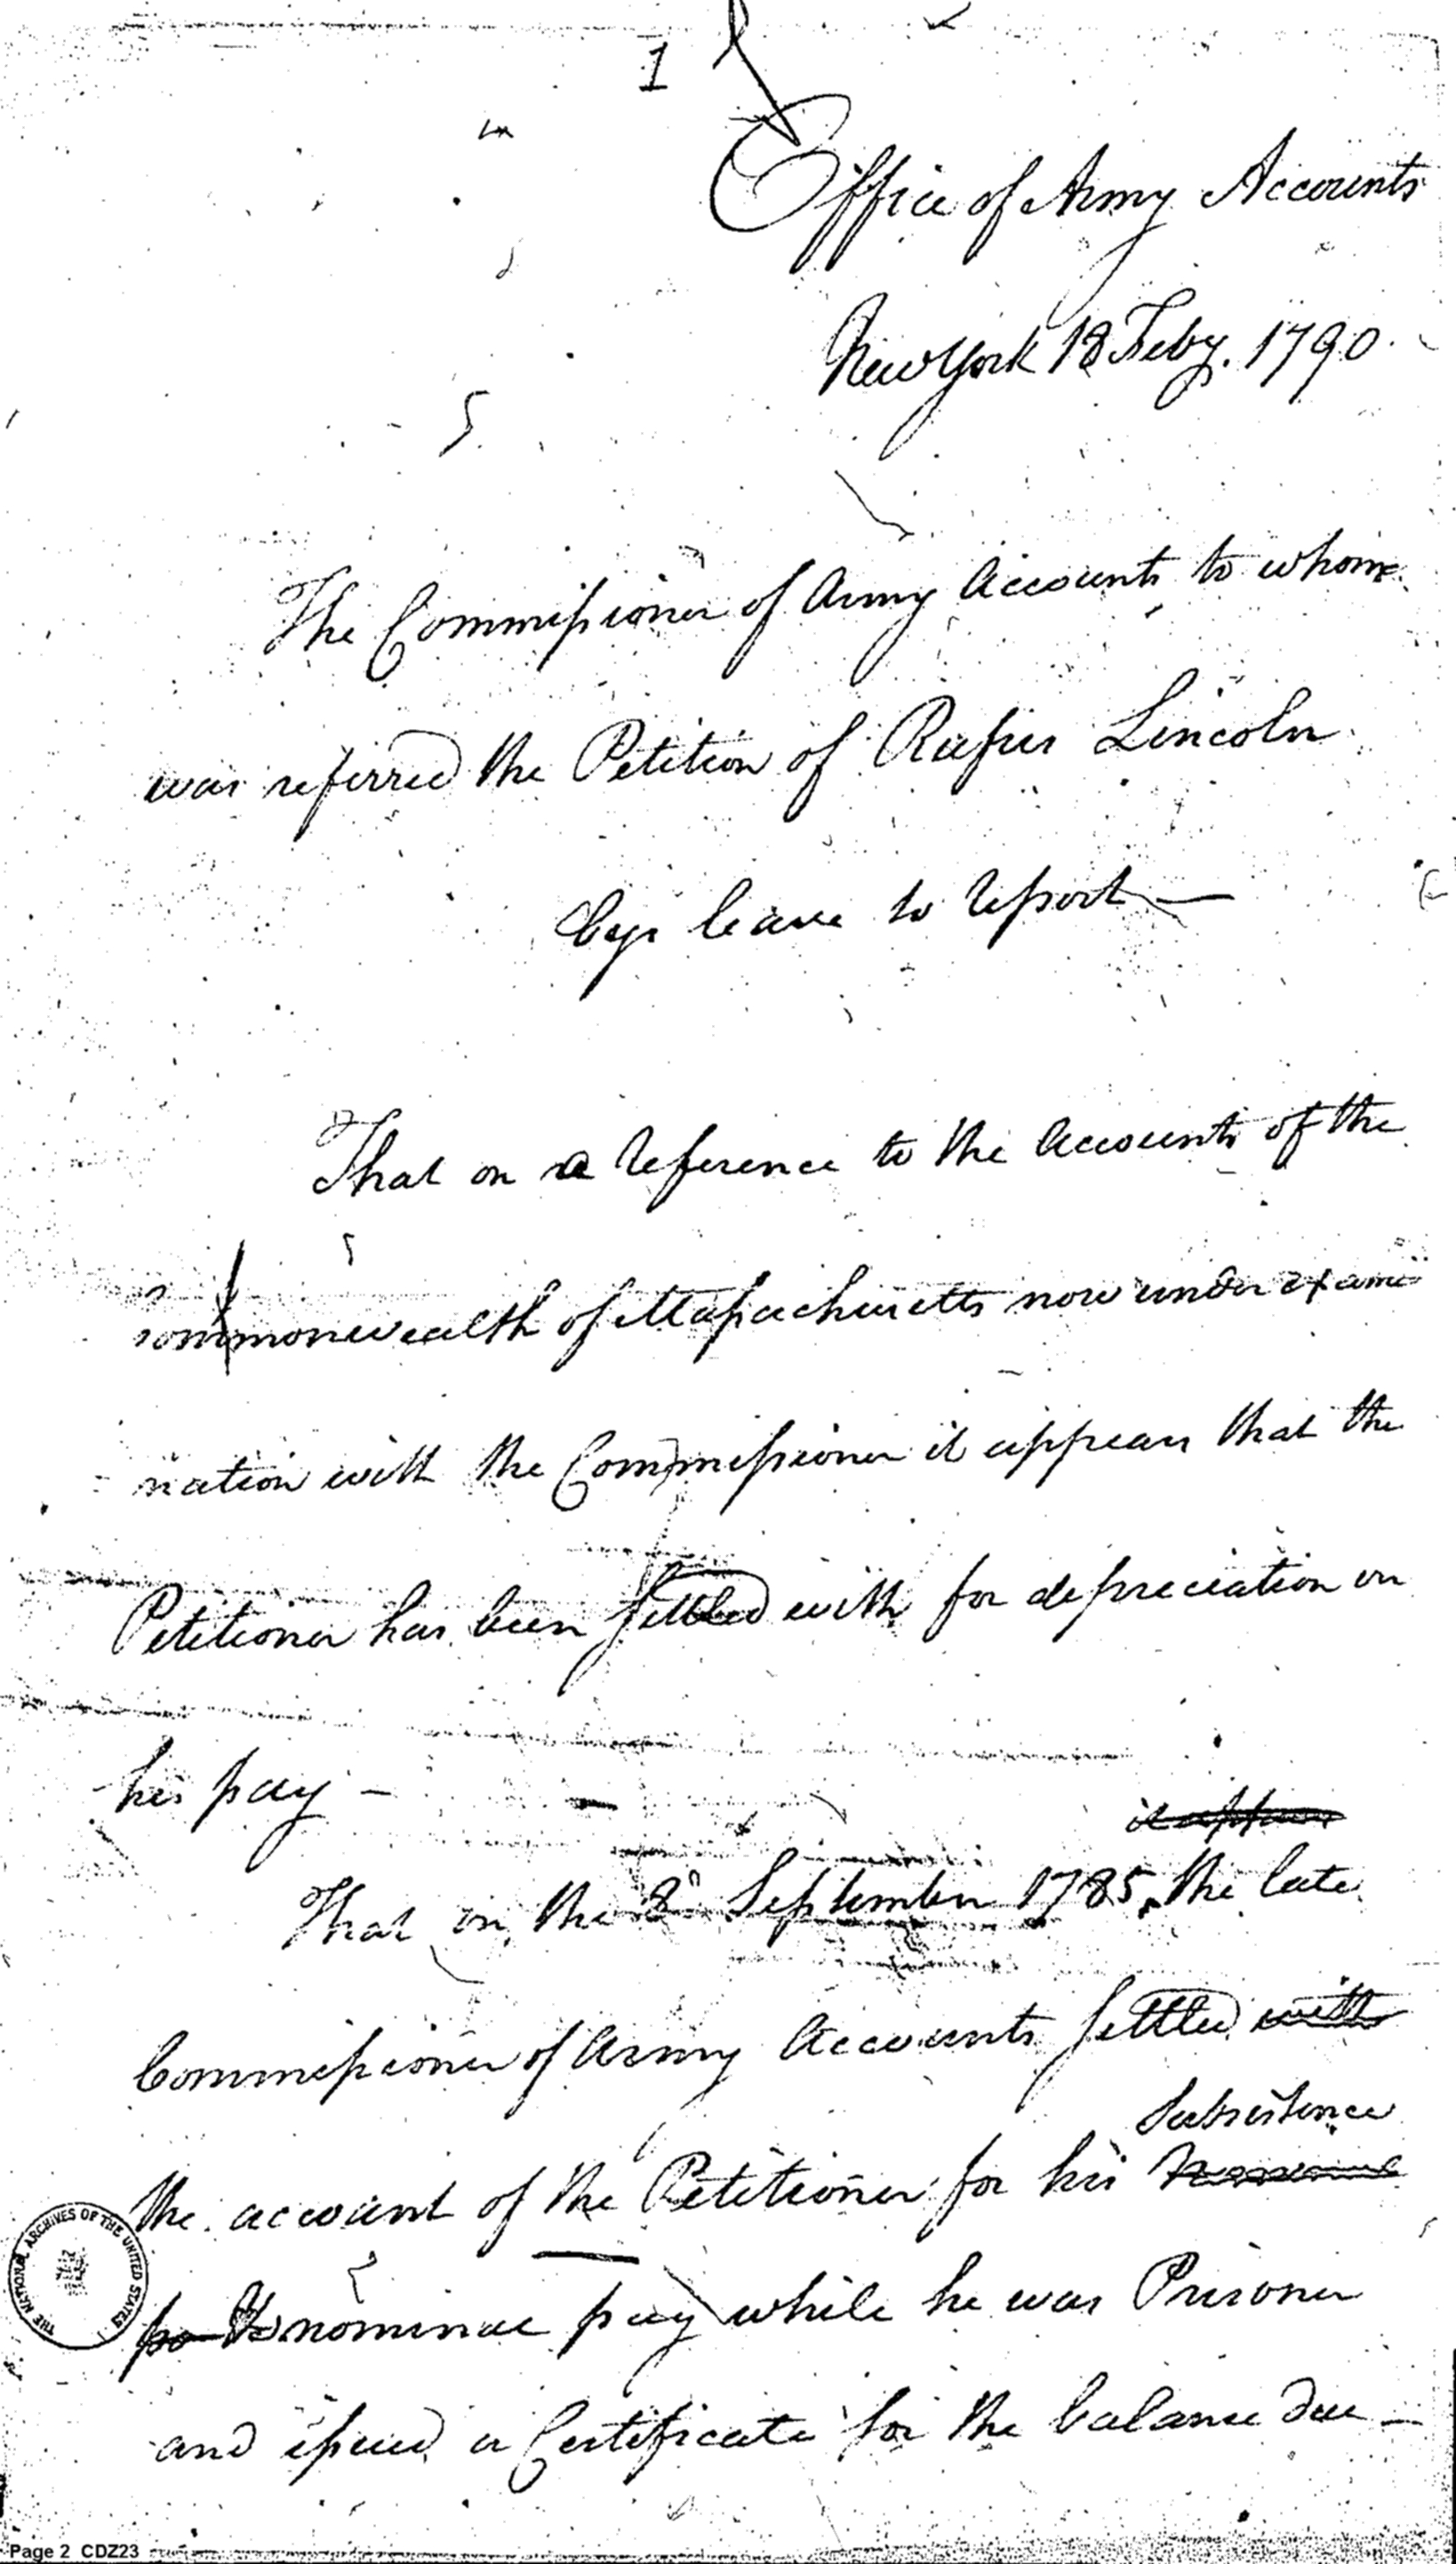 1
Office of Army Accounts
New York 18 Feby. 1790.
The Commissioner of Army Accounts to whom
was referred the Petition of Rufus Lincoln
begs leave to report —
That on a reference to the Accounts of the
commonwealth of Massachusetts now under exami
nation with the Commissioner it appears that the
Petitioner has been settled with for depreciation on
his pay —
it appears
That on the 8th September 1785, the late
Commissioner of Army Accounts settled with
Subsistence
the account of the Petitioner for his
nominal pay while he was Prisoner
and issued a Certificate for the balance due —
THE NATIONAL ARCHIVES OF THE UNITED STATES
Page 2 CDZ23